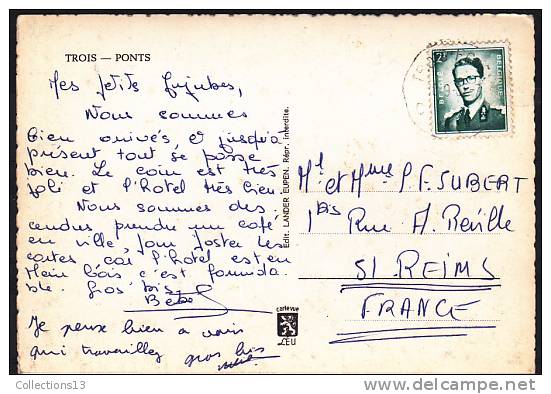 TROIS — PONTS
Mes petits Jujubes,
Nous sommes
bien arrivés, et jusqu'à
présent tout se passe
bien. Le coin est très
joli et l'hotel très bien.
Nous sommes des
cendus prendre un café
en ville, pour poster les
cartes car l'hotel est en
plein bois c'est formida
ble. Gros bis
Bébé
Je pense bien a vous
qui travaillez gros bis
Edit. LANDER EUPEN. Répr. interdite.
carte vue
LEU
2F
BELGIE BELGIQUE
Ml et Mme P.F. SUBERT
1 Bis Rue A. Réville
51 REIMS
FRANCE
Collections13
delcampe.net